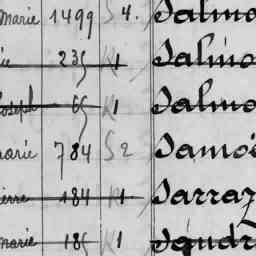 Marie 1499 S 4. Salmo
ie 235 K 1 Salmo
Joseph 65 K 1 Salmo
Marie 784 S 2 Samoë
ierre 184 K 1 Sarraz
Marie 185 K 1